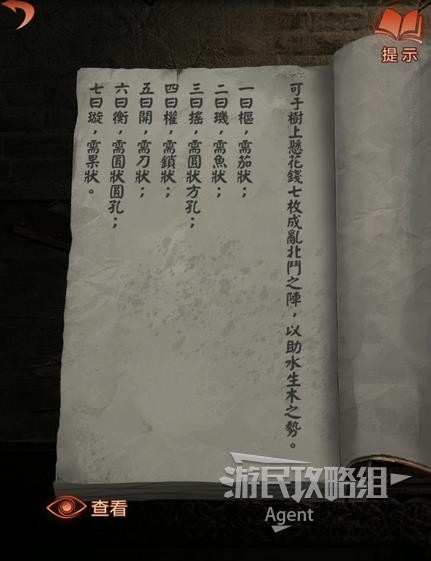 提示
可于樹上懸花錢七枚成亂北鬥之陣，以助水生木之勢。
一曰樞，需茄狀；
二曰璣，需魚狀；
三曰搖，需圓狀方孔；
四曰權，需鎖狀；
五曰開，需刀狀；
六曰衡，需圓狀圓孔；
七曰璇，需果狀。
查看
游民攻略组
Agent